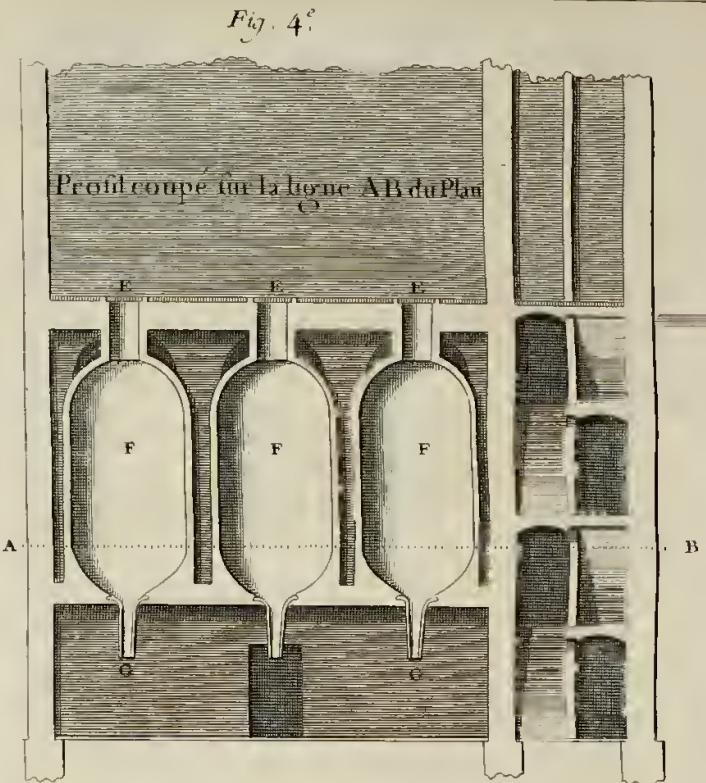 Fig. 4e.
Profil coupé sur la ligne AB du Plan
E E E
F F F
A B
G G